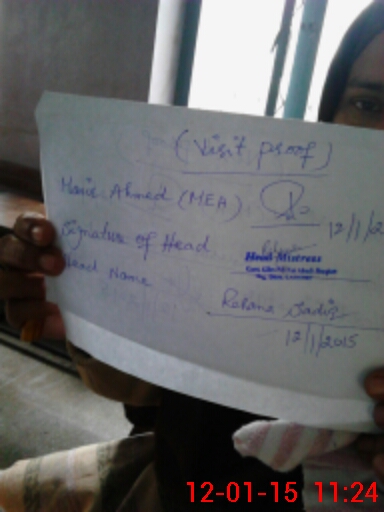 (Visit proof)
Name: Ahmed (MEA)
12/1/2
Signature of Head
Head Mistress
Head Name
Rehana Sadiq
12/1/2015
12-01-15 11:24